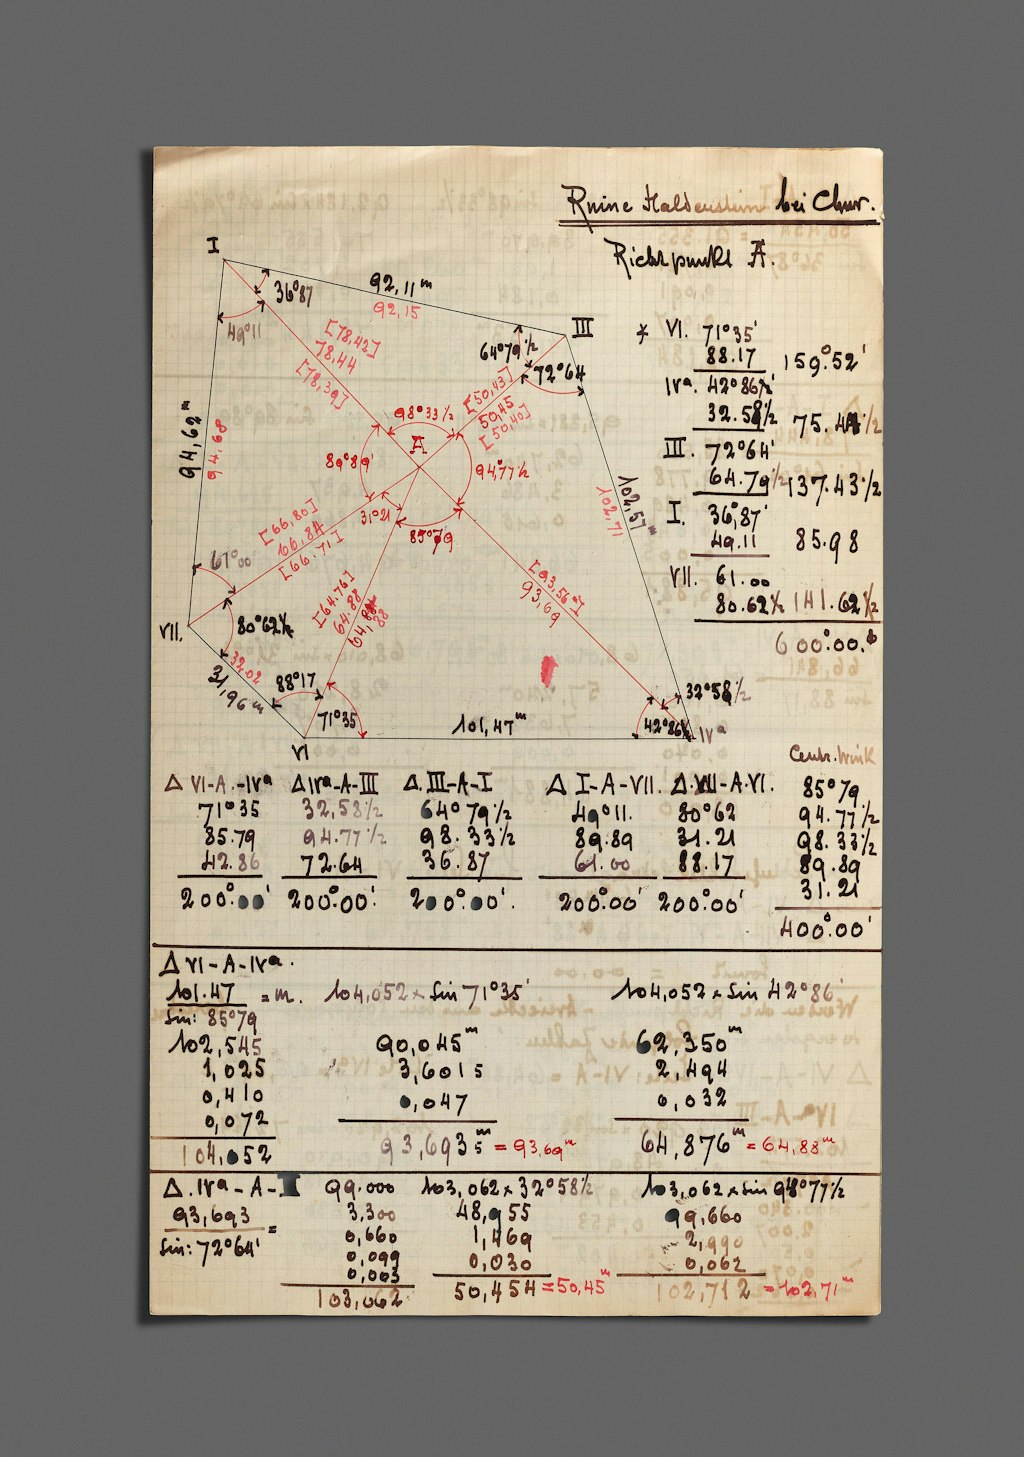 Ruine Haldenstein bei Chur.
Richtpunkt A.
I
36°87
49°11
92,11 m
92,15
III
64°79½
72°64
[78,42]
78,44
[78,39]
[50,43]
50,45
[50,40]
98°33½
A
89°89'
94°77½
31°21
85°79
94,62 m
94,68
102,57 m
102,71
[66,80]
66,84
[66,71]
61°00
[64,76]
64,88
64,88
[93,56]
93,69
VII.
80°62½
32,02
31,96 m
88°17
71°35
VI
101,47 m
32°58½
42°86½
IVa
* VI. 71°35'
88.17 159°52'
IVa. 42°86½'
32.58½ 75.44½
III. 72°64'
64.79½ 137.43½
I. 36°87'
49.11 85.98
VII. 61.00
80.62½ 141.62½
600°00.
Centr. Wink
85°79
94.77½
98.33½
89.89
31.21
400°00'
Δ VI-A.-IVa Δ IVa-A-III Δ.III-A-I Δ I-A-VII. Δ.VII-A-VI.
71°35 32,58½ 64°79½ 49°11. 80°62
85.79 94.77½ 98.33½ 89.89 31.21
42.86 72.64 36.87 61.00 88.17
200°00' 200°00' 200°00'. 200°00' 200°00'
Δ VI-A-IVa.
101.47 = m. 104,052 x Sin 71°35' 104,052 x Sin 42°86'
Sin: 85°79
102,545 90,045 m 62,350 m
1,025 3,6015 2,494
0,410 0,047 0,032
0,072
104,052 93,6935 m = 93,69 m 64,876 m = 64,88 m
Δ. IVa-A-I 99.000 103,062 x 32°58½ 103,062 x Sin 94°77½
93,693 = 3.300 48,955 99,660
Sin: 72°64' 0,660 1,469 2,990
0,099 0,030 0,062
0,003
103,062 50,454 = 50,45 m 102,712 = 102,71 m